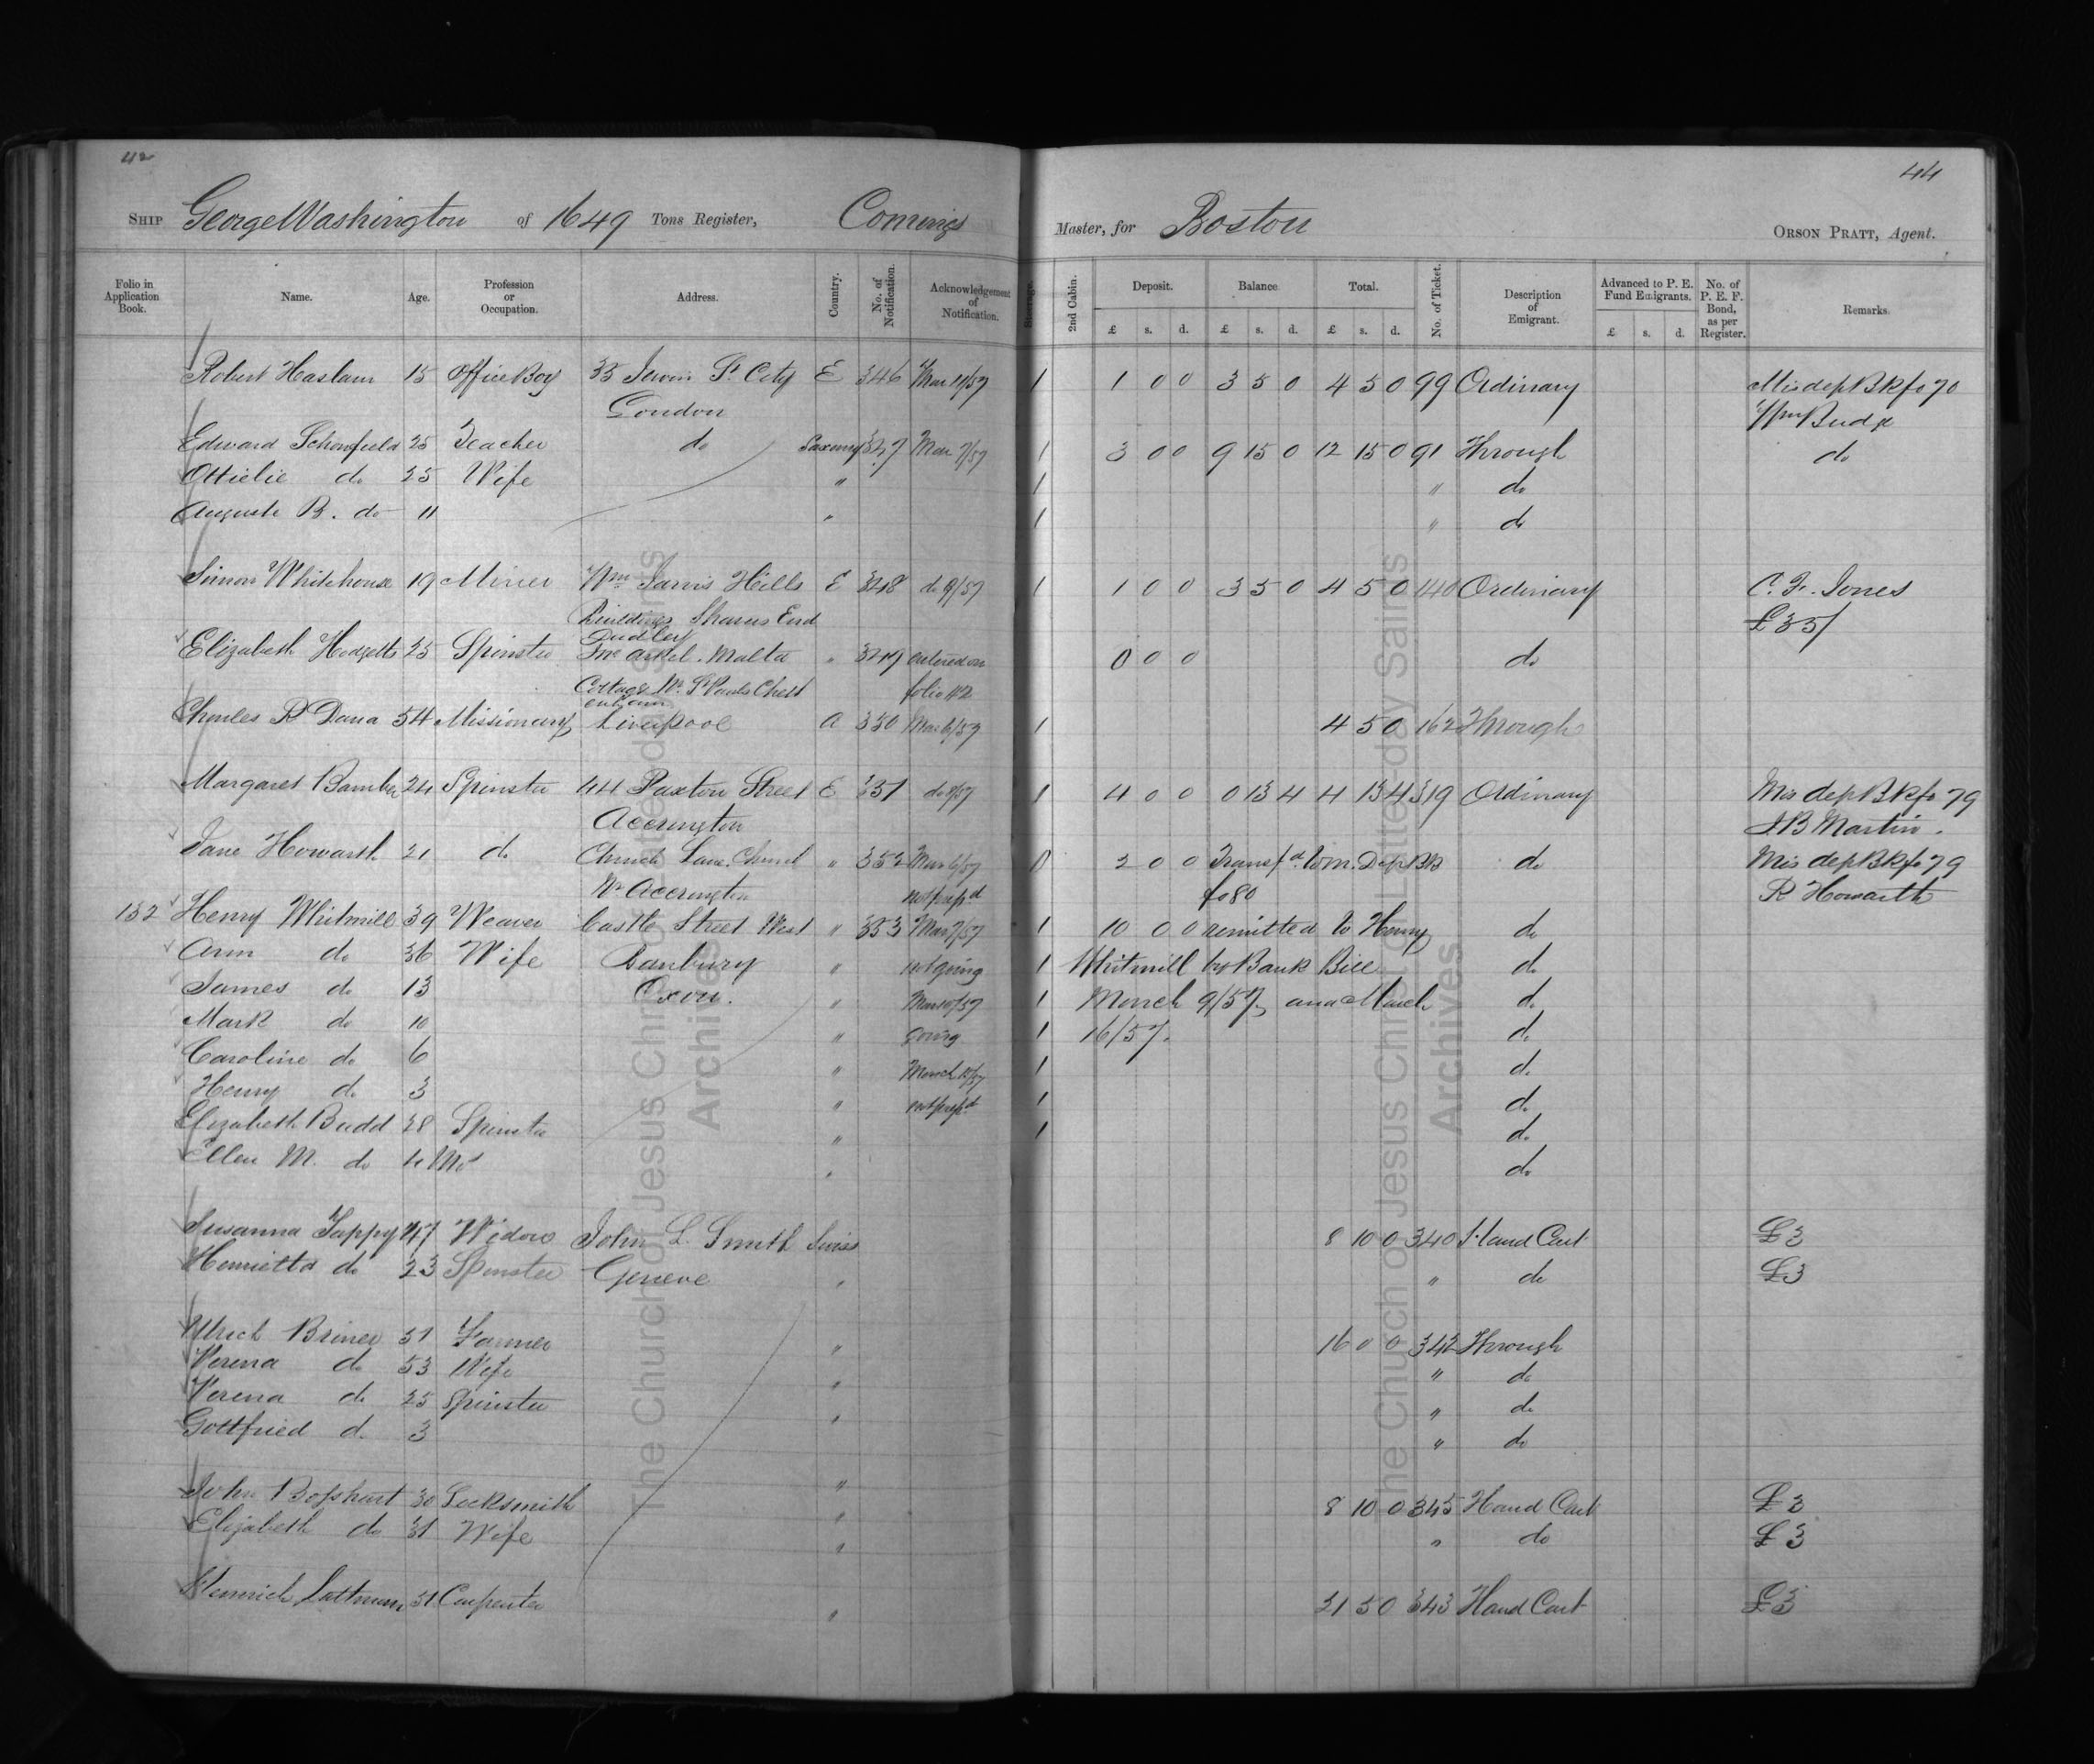 42
44
SHIP George Washington of 1649 Tons Register, Comings Master, for Boston ORSON PRATT, Agent.
Folio in Application Book. Name. Age. Profession or Occupation. Address. Country. No. of Notification. Acknowledgement of Notification. Steerage. 2nd Cabin. Deposit. Balance Total. No. of Ticket. Description of Emigrant. Advanced to P. E. Fund Emigrants. No. of P. E. F. Bond, as per Register. Remarks.
£ s. d. £ s. d. £ s. d. £ s. d.
Robert Haslam 15 Office Boy 33 Jewin St. City E 346 Mar 11/57 1 1 0 0 3 5 0 4 5 0 99 Ordinary Mis dep BK fo 70
London Wm Budge
Edward Schonfield 25 Teacher do Saxony 347 Mar 7/57 1 3 0 0 9 15 0 12 15 0 91 Through do
Ottielie do 25 Wife " 1 " do
Auguste B. do 11 " 1 " do
Simon Whitehouse 19 Miner Wm Jarvis Hills E 348 do 9/57 1 1 0 0 3 5 0 4 5 0 140 Ordinary C. F. Jones
Buildings Shavers End £35/
Dudley
Elizabeth Hodgetts 25 Spinster Malta " 349 entered on 0 0 0 do
Cottage Nr. St Pauls Chelt folio 42
enham
Charles R Dana 54 Missionary Liverpool A 350 Mar 6/57 1 4 5 0 162 Through
Margaret Bamber 24 Spinster 44 Paxton Street E 351 do 8/57 1 4 0 0 0 13 4 4 13 4 319 Ordinary Mis dep BK fo 79
Accrington J B Martin.
Jane Howarth 21 do Church Lane, Church " 352 Mar 6/57 2 0 0 Transfd. to m. Dep BK do Mis dep BK fo 79
Nr Accrington not prepd fo 80 R Howarth
132 Henry Whitmill 39 Weaver Castle Street West " 353 Mar 7/57 1 10 0 0 remitted to Henry do
Ann do 36 Wife Banbury " not going 1 Whitmill by Bank Bill do
James do 13 Oxon. " Mar 10/57 1 March 9/57, and March do
Mark do 10 " going 1 16/57. do
Caroline do 6 " March 12/57 1 do
Henry do 3 " not prepd 1 do
Elizabeth Budd 28 Spinster " 1 do
Ellen M. do 4 Mos " do
Susanna Tappy 47 Widow John L. Smith Swiss 8 10 0 340 Hand Cart £3
Henrietta do 23 Spinster Geneve " " do £3
Ulrich Briner 51 Farmer " 16 0 0 342 Through
Verena do 53 Wife " " do
Verena do 25 Spinster " " do
Gottfried do 3 " do
John Bosshart 30 Locksmith " 8 10 0 345 Hand Cart £3
Elizabeth do 31 Wife " " do £3
Heinrich 31 Carpenter " 343 Hand Cart £3
The Church of Jesus Christ of Latter-day Saints
Archives
The Church of Jesus Christ of Latter-day Saints
Archives